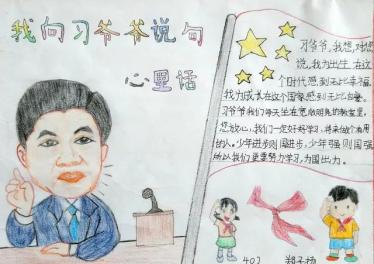 我向习爷爷说句
心里话
习爷爷,我想对您
说,我为出生在这
个时代感到无比幸福,
我为成长在这个国家感到无比自豪。
习爷爷我们每天坐在宽敞明亮的教室里,
您放心,我们一定好好学习,将来做个有用
的人。少年进步则国进步,少年强则国强
所以我们更要努力学习,为国出力。
402
郑子扬